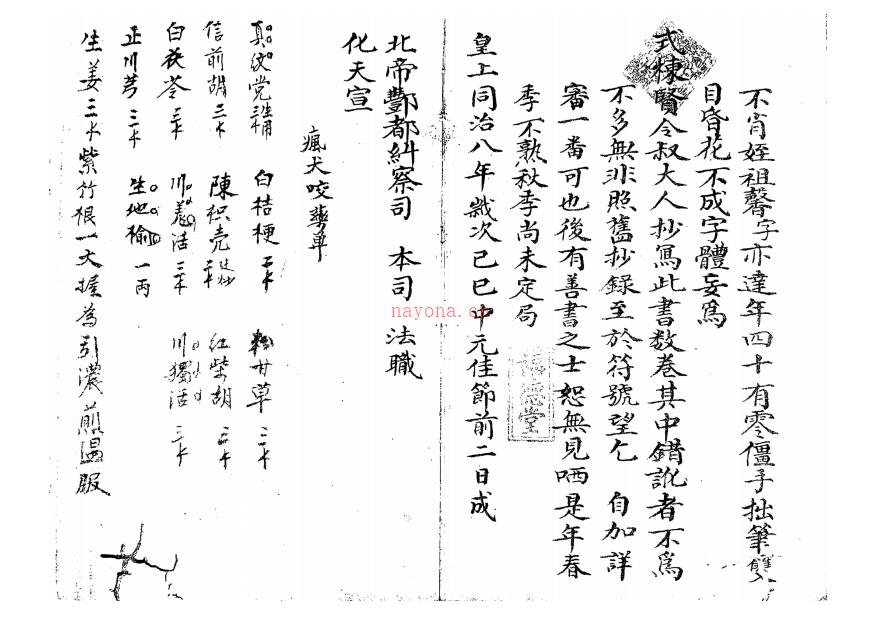 不肖姪祖馨字亦達年四十有零僵手拙筆雙
目昏花不成字體妄爲
式棟賢令叔大人抄寫此書数卷其中錯訛者不爲
不多無非照舊抄錄至於符號望乞 自加詳
審一畨可也後有善書之士恕無見哂是年春
季不熟秋季尚未定局
皇上同治八年歲次己巳中元佳節前二日成
福德堂
北帝酆都糾察司 本司 法職
化天宣
瘋犬咬藥单
真纹党三 白桔梗 二 甘草 三
信前胡三 陳枳壳 二 炒 红柴胡 三
白茯苓 三 川羌活 三 川獨活 三
正川芎 三 生地榆 一两
生姜三 紫竹根一大握為引濃煎温服
nayona.cn